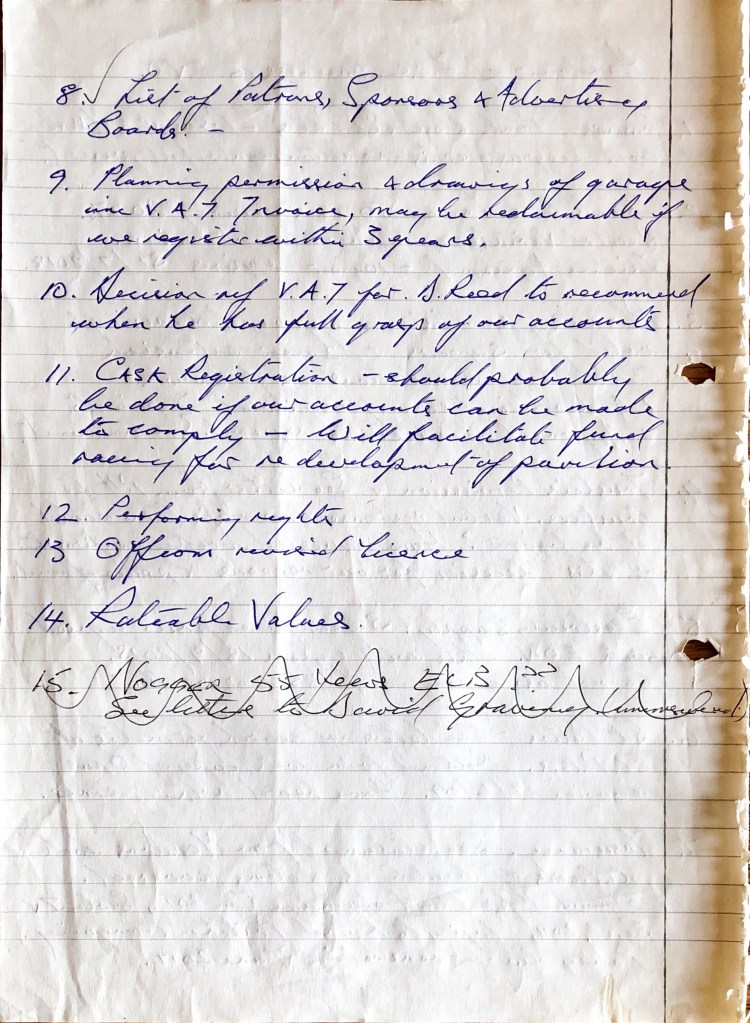 8. ✓ List of Patrons, Sponsors & Advertising
Boards. -
9. Planning permission & drawings of garage
inc V.A.T. Invoice, may be reclaimable if
we register within 3 years.
10. Decision ref V.A.T for. D. Reed to recommend
when he has full grasp of our accounts
11. CASK Registration - should probably
be done if our accounts can be made
to comply - Will facilitate fund
racing for redevelopment of pavilion.
12. Performing rights
13 Offcom revised licence
14. Rateable Values.
15. Nogger 55 Years
See letter to David